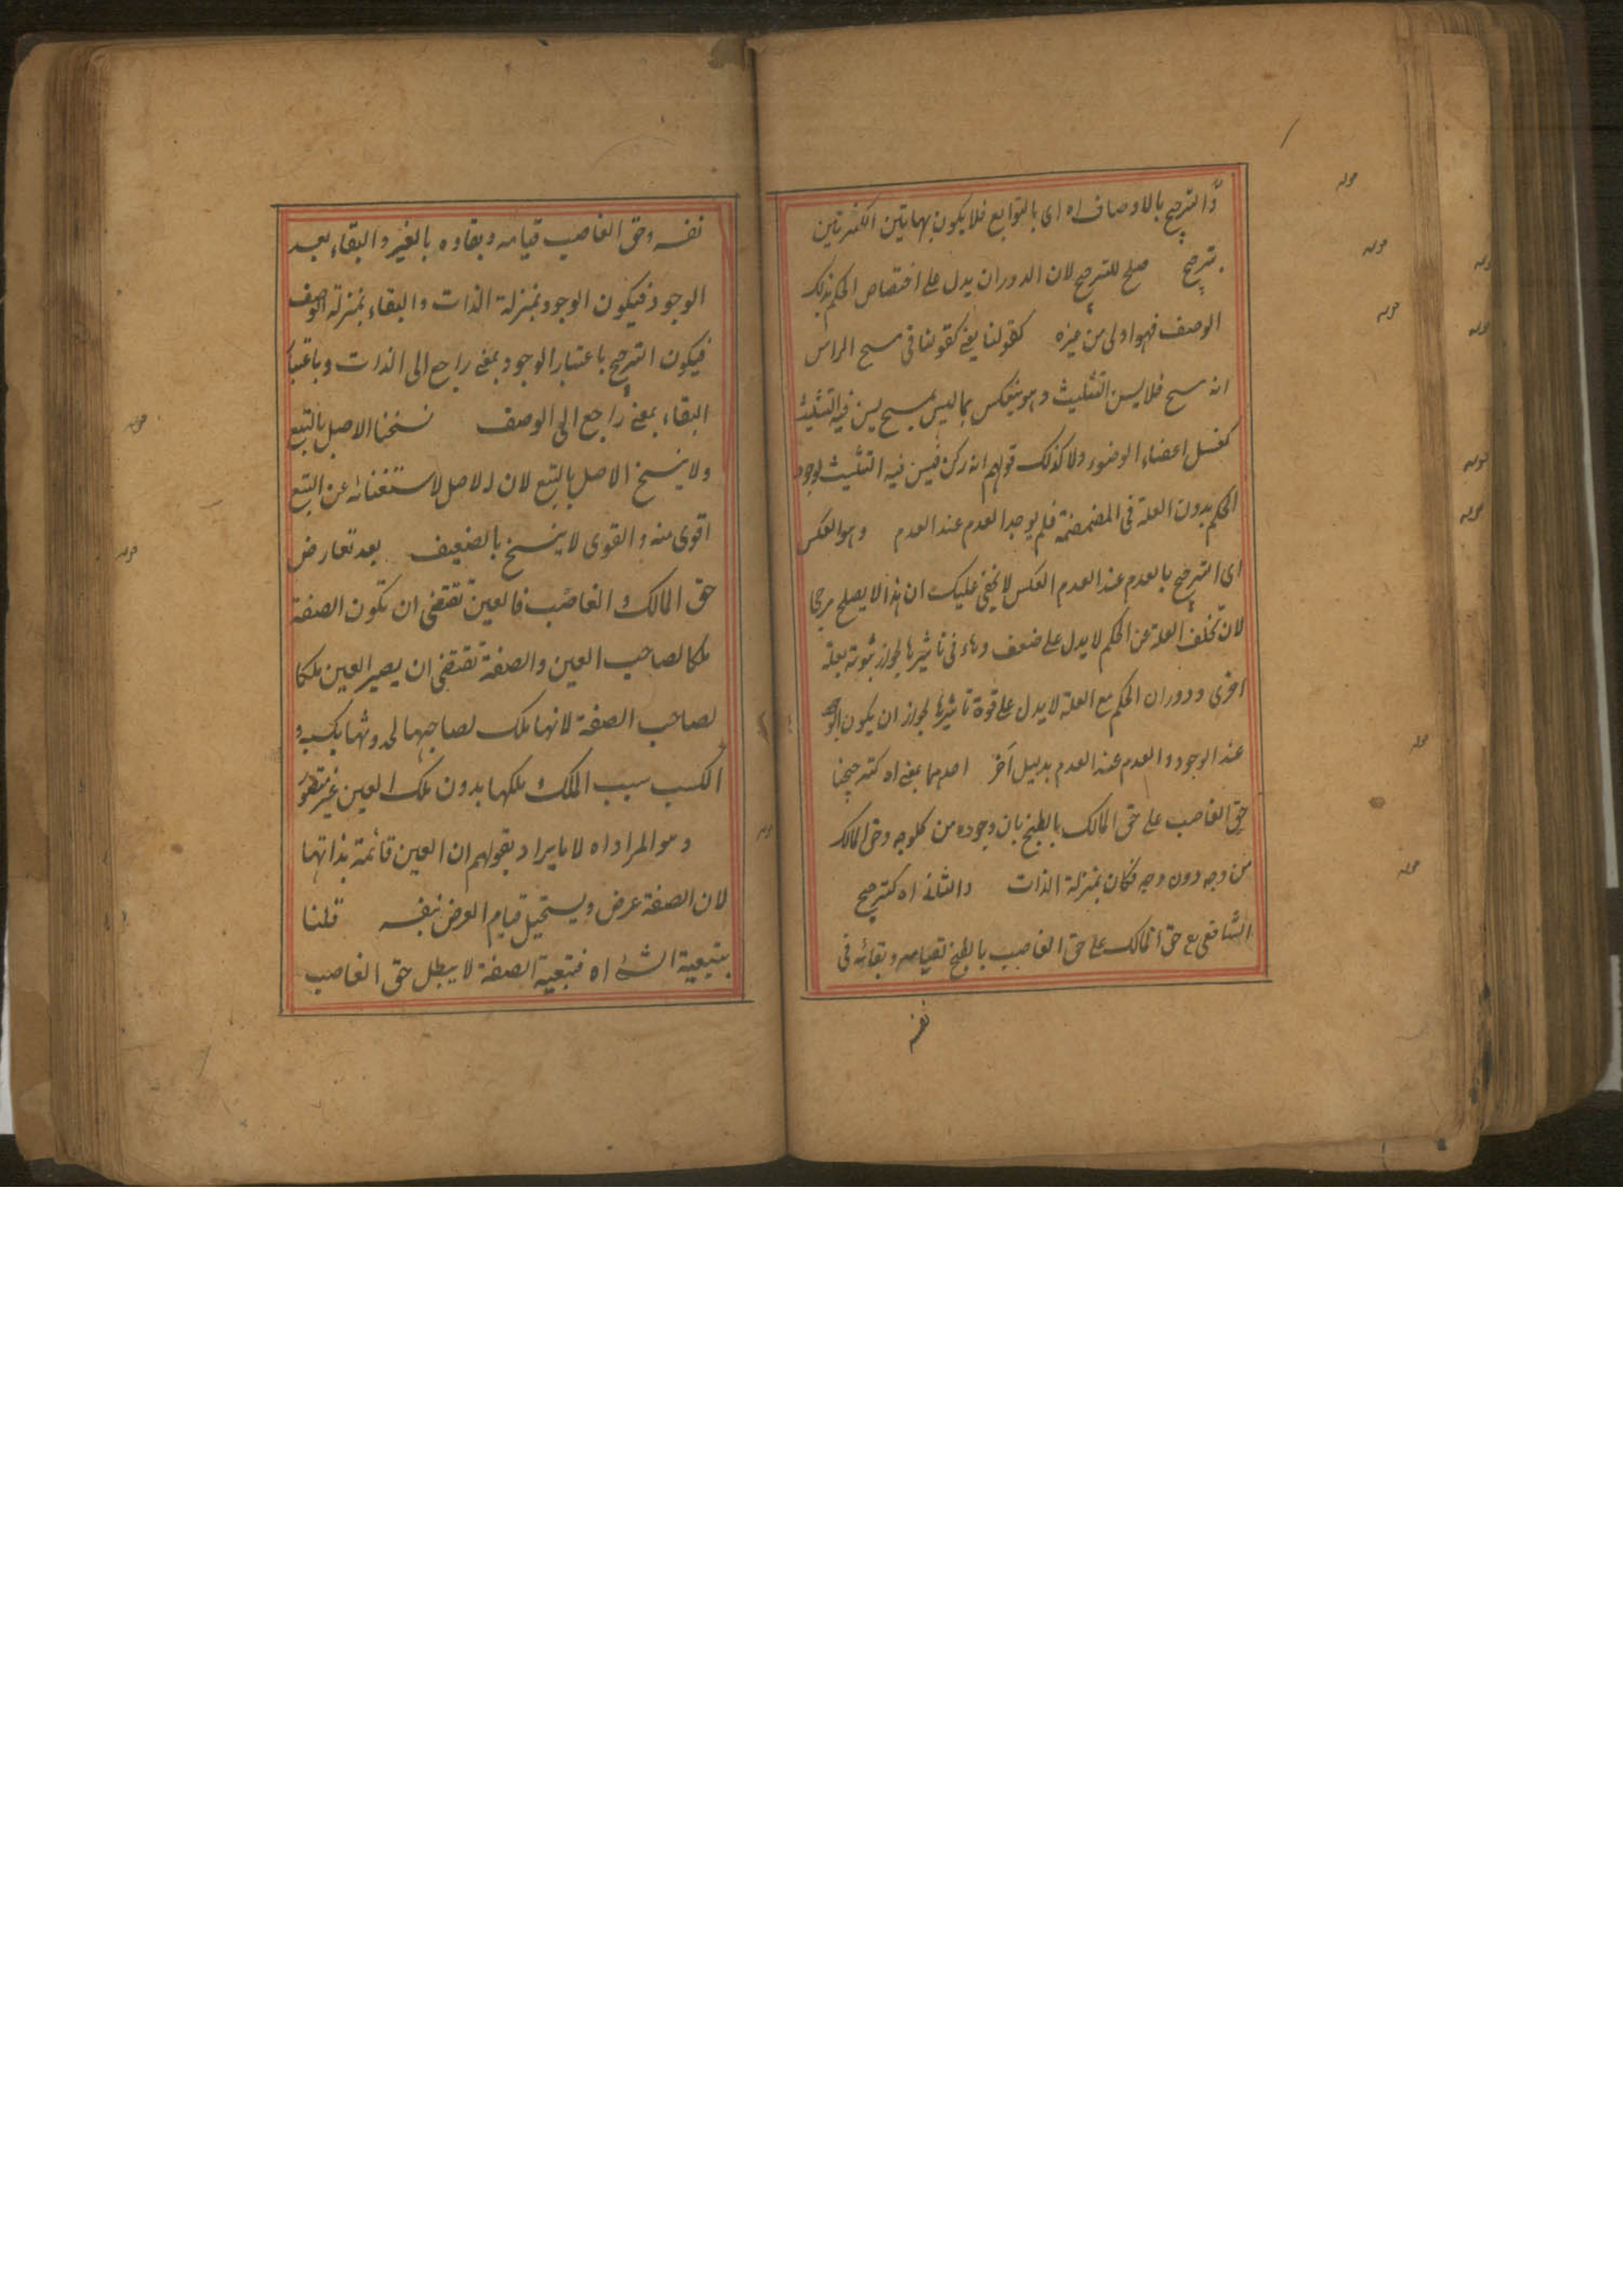 والترجيح بالاوصاف اه اى بالتوابع فلا يكون بهاتين الكثرتين
ترجيح صلح للترجيح لان الدوران يدل على اختصاص الحكم بذلك
الوصف فهو اولى من غيره كقولنا يعنى كقولنا فى مسح الراس
انه مسح فلا يسن التثليث وهو ينعكس بما ليس بمسح يسن فيه التثليث
كغسل اعضاء الوضوء ولا كذلك قولهم انه ركن فيسن فيه التثليث لوجود
الحكم بدون العلة فى المضمضة فلم يوجد العدم عند العدم وهو العكس
اى الترجيح بالعدم عند العدم العكس لا يخفى عليك ان هذا لا يصلح مرجحا
لان تخلف العلة عن الحكم لا يدل على ضعف وهاء فى تاثيرها لجواز ثبوته بعلة
اخرى ودوران الحكم مع العلة لا يدل على قوة تاثيرها لجواز ان يكون الوجود
عند الوجود والعدم عند العدم بدليل آخر احدهما بمعنى اه كترجيحنا
حق الغاصب على حق المالك بالطبخ بان وجوده من كل وجه وحق المالك
من وجه دون وجه فكان بمنزلة الذات والثانى اه كترجيح
الشافعى رح حق المالك على حق الغاصب بالطبخ لقيامه وبقائه فى
نفسه
نفسه وحق الغاصب قيامه وبقاوه بالغير والبقاء بعد
الوجود فيكون الوجود بمنزلة الذات والبقاء بمنزلة الوصف
فيكون الترجيح باعتبار الوجود بمعنى راجع الى الذات وباعتبار
البقاء بمعنى راجع الى الوصف نسخنا الاصل بالتبع
ولا ينسخ الاصل بالتبع لان الاصل لاستغنائه عن التبع
اقوى منه والقوى لا ينسخ بالضعيف بعد تعارض
حق المالك والغاصب فالعين تقتضى ان تكون الصفة
ملكا لصاحب العين والصفة تقتضى ان يصير العين ملكا
لصاحب الصفة لانها ملك لصاحبها لحدوثها بكسبه و
الكسب سبب الملك وملكها بدون ملك العين غير متصور
وهو المراد اه لا ما يراد بقولهم ان العين قائمة بذاتها
لان الصفة عرض ويستحيل قيام العرض بنفسه قلنا
بتبعية الشئ اه فتبعية الصفة لا يبطل حق الغاصب